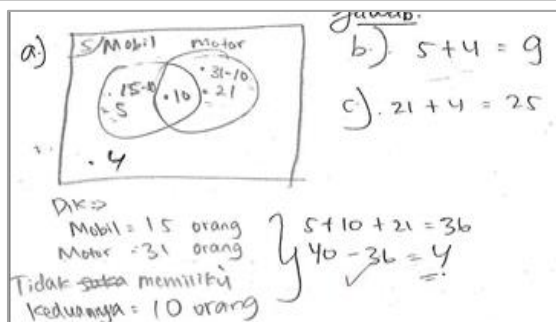 Jawab.
a.) S/Mobil Motor
. 15-10
= 5
. 10
. 31-10
= 21
. 4
b.). 5 + 4 = 9
c). 21 + 4 = 25
Dik =>
Mobil = 15 orang
Motor = 31 orang
Tidak suka memiliki
Keduanya = 10 orang
5 + 10 + 21 = 36
40 - 36 = 4